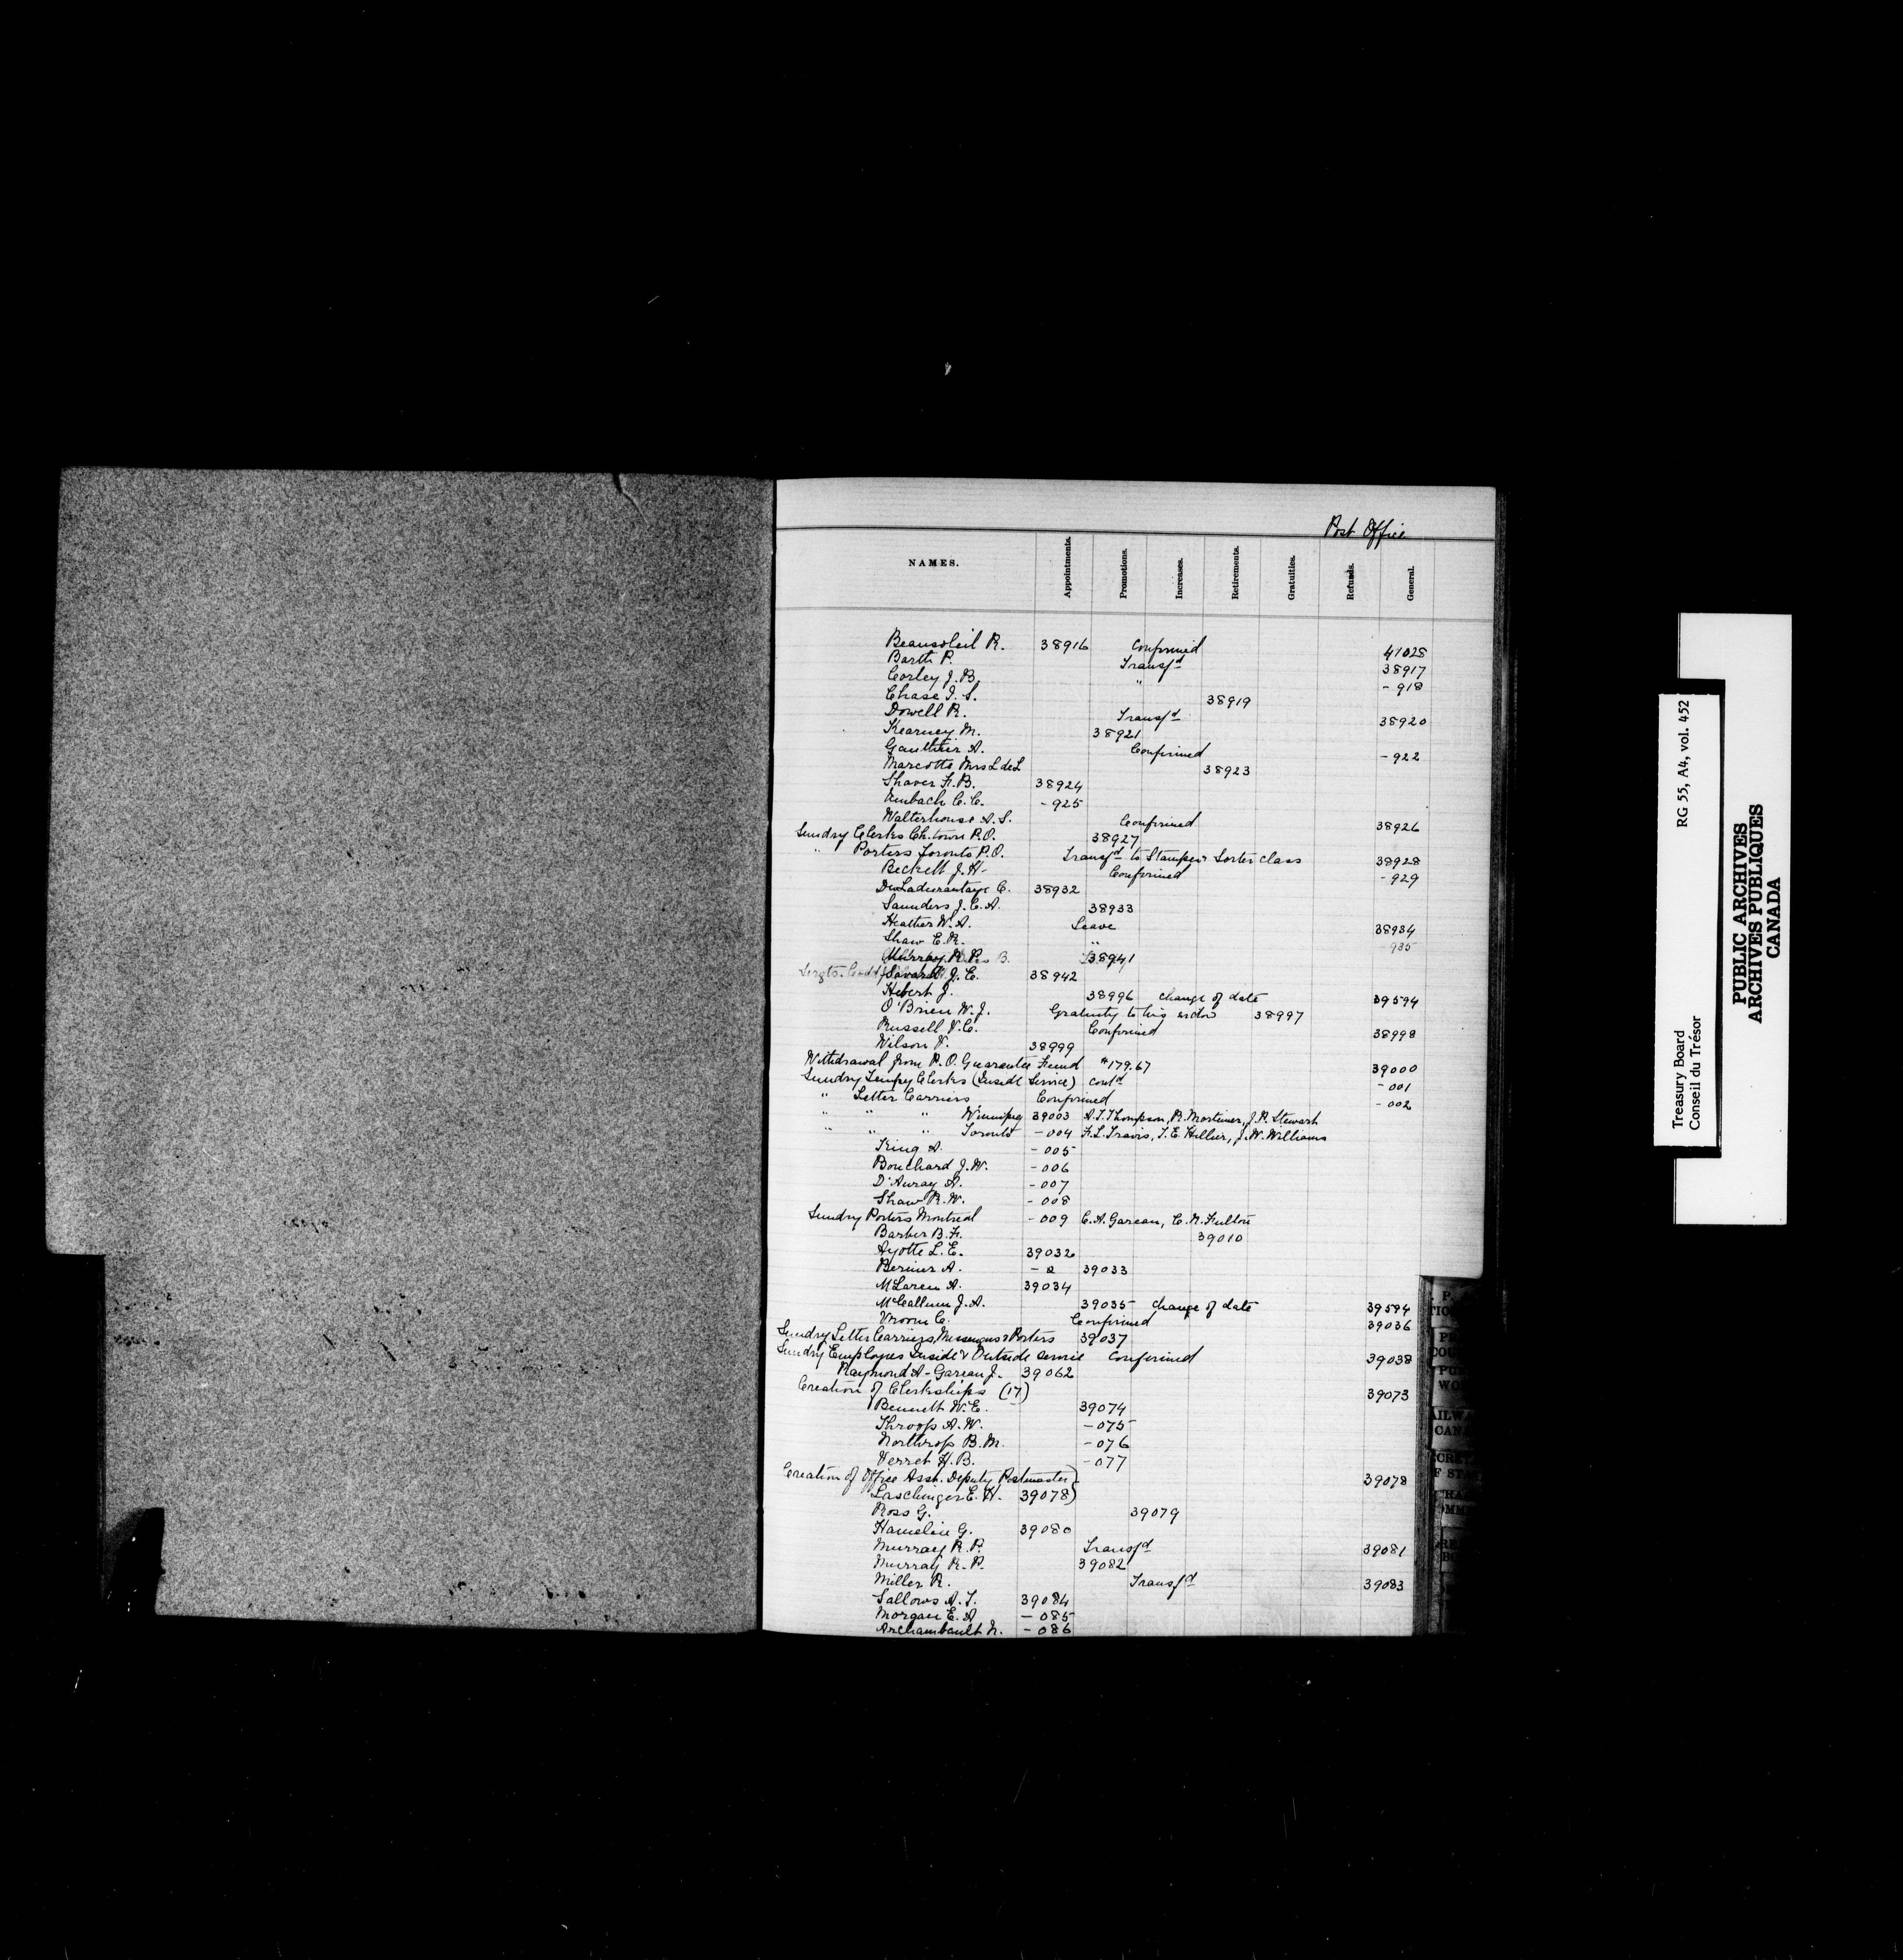 Post Office
NAMES. Appointments. Promotions. Increases. Retirements. Gratuities. Refunds. General.
Beausoleil R. 38916 Confirmed 41028
Barth P. Transf'd 38917
Corley J. B. " - 918
Chase I. S. 38919
Dowell R. Transf'd 38920
Kearney M. 38921
Gauthier A. Confirmed - 922
Marcotte Mrs L de L 38923
Shaver F. B. 38924
Umbach C. C. - 925
Walterhouse A. S. Confirmed 38926
Sundry Clerks Ch.town P.O. 38927
" Porters Toronto P.O. Transf'd to Stamper & Sorter class 38928
Beckett J. H. Confirmed - 929
DeLadurantaye C. 38932
Saunders J. C. A. 38933
Heather W. A. Leave 38934
Shaw E. R. " - 935
Murray R. P. 38941
Savard J. E. 38942
Hebert J. 38996 change of date 39594
O'Brien W. J. Gratuity to his widow 38997
Russell V. C. Confirmed 38998
Wilson V. 38999
Withdrawal from P. O. Guarantee Fund $179.67 39000
Sundry Tempy Clerks (Inside Service) cont'd - 001
" Letter Carriers Confirmed - 002
" " " Winnipeg 39003 A. T. Thompson, R. Mortimer, J. R. Stewart
" " " Toronto - 004 F. L. Travis, T. E. Hillier, J. W. Williams
King A. - 005
Bouchard J. W. - 006
D'Auray A. - 007
Shaw R. W. - 008
Sundry Porters Montreal - 009 C. A. Gareau, C. N. Fulton
Barber B. F. 39010
Ayotte L. E. 39032
Bernier A. - a 39033
McLaren A. 39034
McCallum J. A. 39035 change of date 39594
Vroom C. Confirmed 39036
Sundry Letter Carriers, Messengers & Porters 39037
Sundry Employees Inside & Outside service Confirmed 39038
Raymond A - Gareau J. 39062
Creation of Clerkships (17) 39073
Bennett W. E. 39074
Throop A. W. - 075
Northrop B. M. - 076
Verret H. B. - 077
Creation of Office Asst. Deputy Postmaster} 39078
Laschinger E. H. 39078}
Ross G. 39079
Hamelin G. 39080
Murray R. P. Transf'd 39081
Murray R. P. 39082
Miller R. Transf'd 39083
Sallows A. T. 39084
Morgan E. A - 085
Archambault N. - 086
Treasury Board RG 55, A4, vol. 452
Conseil du Trésor
PUBLIC ARCHIVES
ARCHIVES PUBLIQUES
CANADA